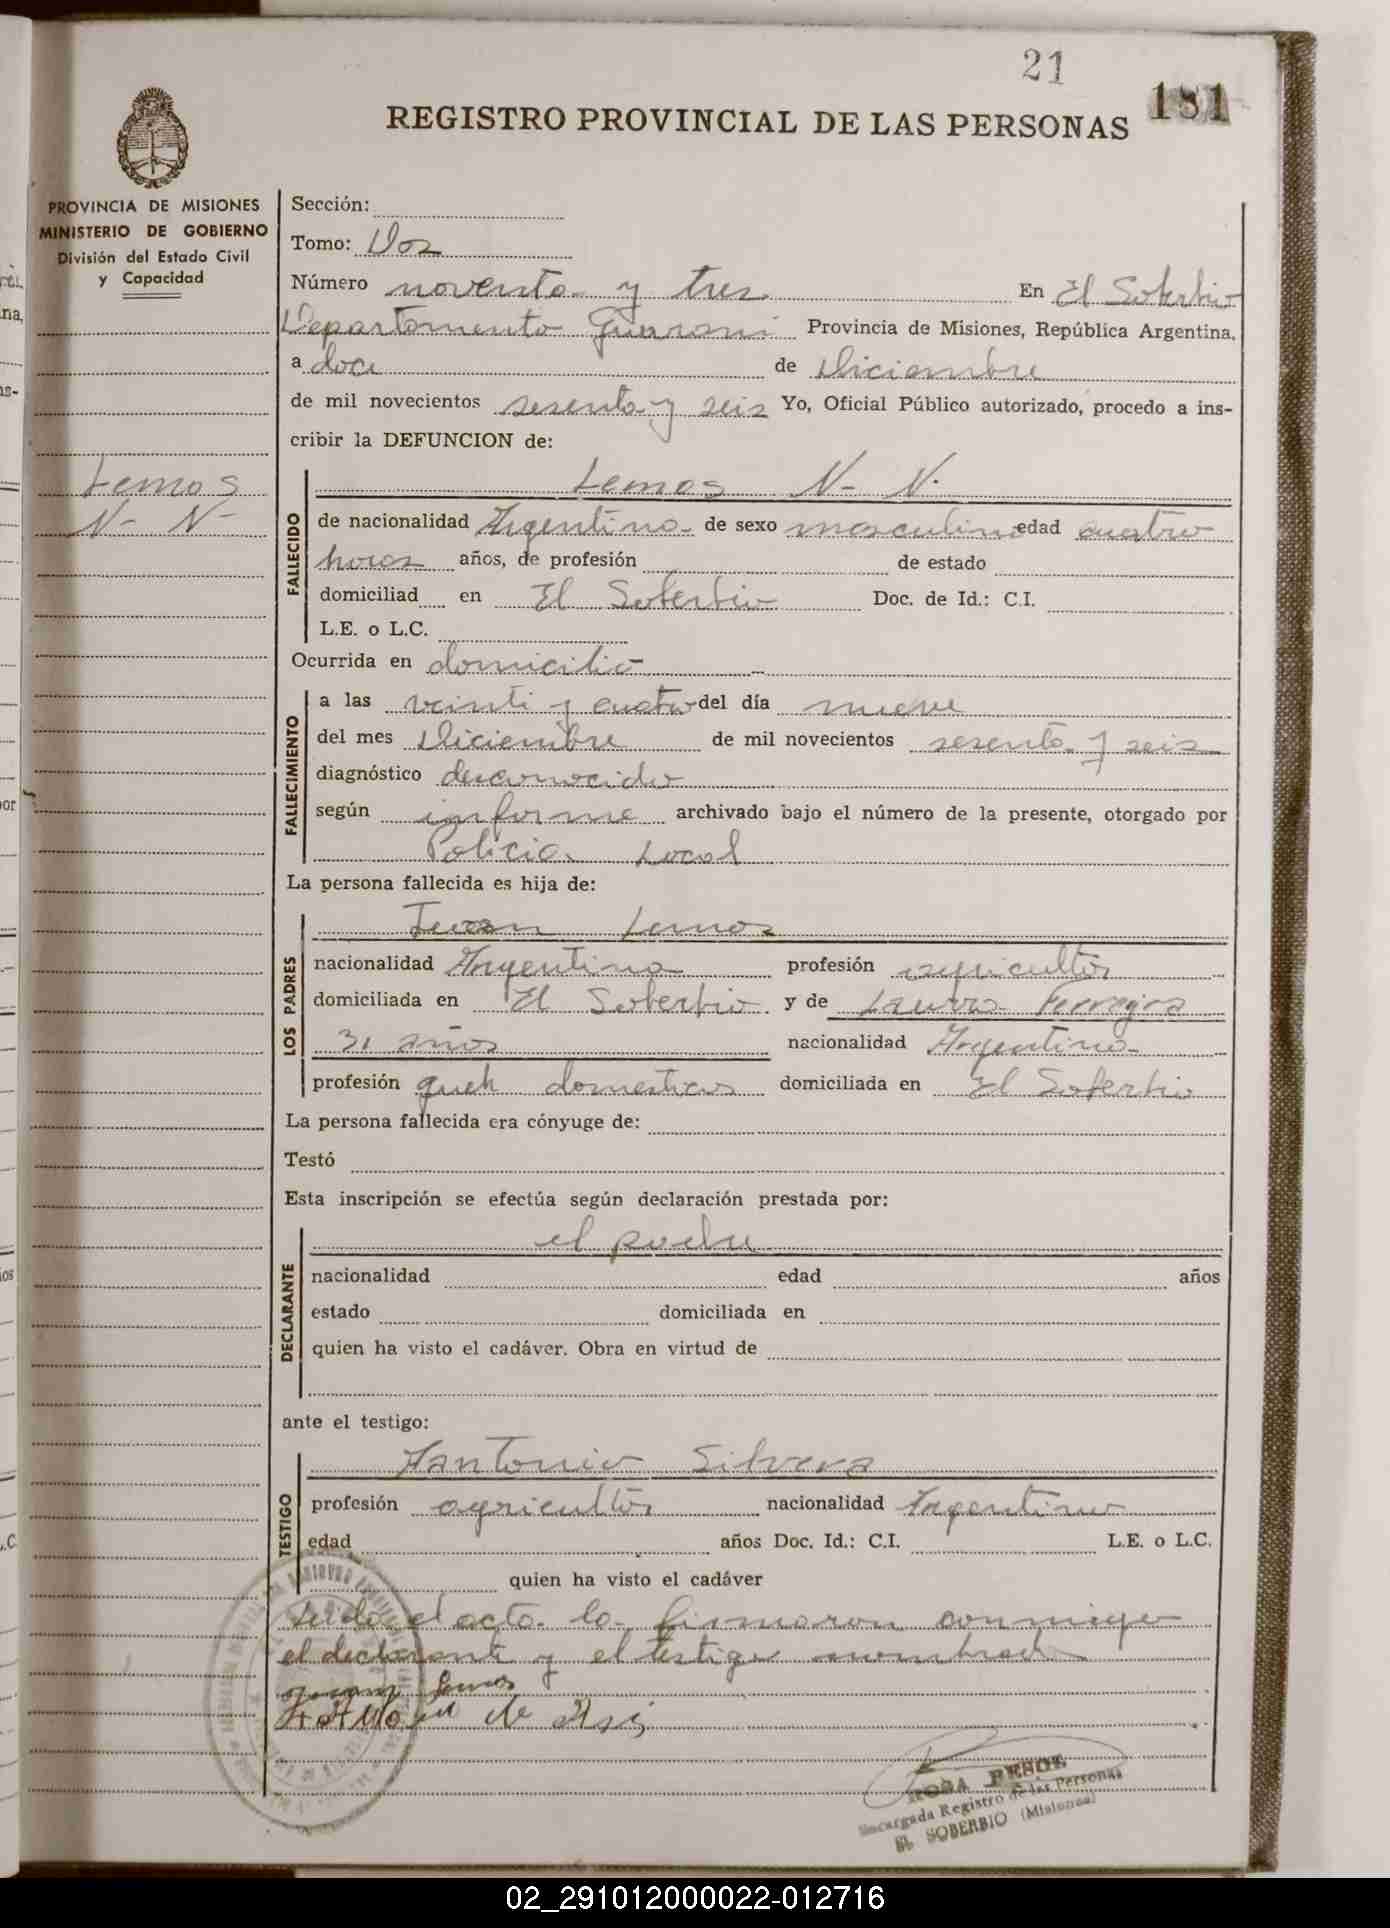 21
181
REGISTRO PROVINCIAL DE LAS PERSONAS
PROVINCIA DE MISIONES
MINISTERIO DE GOBIERNO
División del Estado Civil
y Capacidad
Lemos
N- N-
Sección:
Tomo: Dos
Número noventa y tres En El Soberbio
Departamento Guarani Provincia de Misiones, República Argentina,
a doce de Diciembre
de mil novecientos sesenta y seis Yo, Oficial Público autorizado, procedo a ins-
cribir la DEFUNCION de:
FALLECIDO
Lemos N- N.
de nacionalidad Argentina de sexo masculino edad cuatro
horas años, de profesión de estado
domiciliad en El Soberbio Doc. de Id.: C.I.
L.E. o L.C.
Ocurrida en domicilio
FALLECIMIENTO
a las veinti y cuatro del día nueve
del mes Diciembre de mil novecientos sesenta y seis
diagnóstico desconocido
según informe archivado bajo el número de la presente, otorgado por
Policia Local
La persona fallecida es hija de:
LOS PADRES
Juan Lemos
nacionalidad Argentina profesión agricultor
domiciliada en El Soberbio y de Laura Ferreyra
31 años nacionalidad Argentina
profesión queh domesticos domiciliada en El Soberbio
La persona fallecida era cónyuge de:
Testó
Esta inscripción se efectúa según declaración prestada por:
DECLARANTE
el padre
nacionalidad edad años
estado domiciliada en
quien ha visto el cadáver. Obra en virtud de
ante el testigo:
TESTIGO
Antonio Silvera
profesión agricultor nacionalidad Argentino
edad años Doc. Id.: C.I. L.E. o L.C.
quien ha visto el cadáver
Leido el acto lo firmaron conmigo
el declarante y el testigo nombrado
Juan Lemos
ROSA
Encargada Registro de las Personas
EL SOBERBIO (Misiones)
02_291012000022-012716